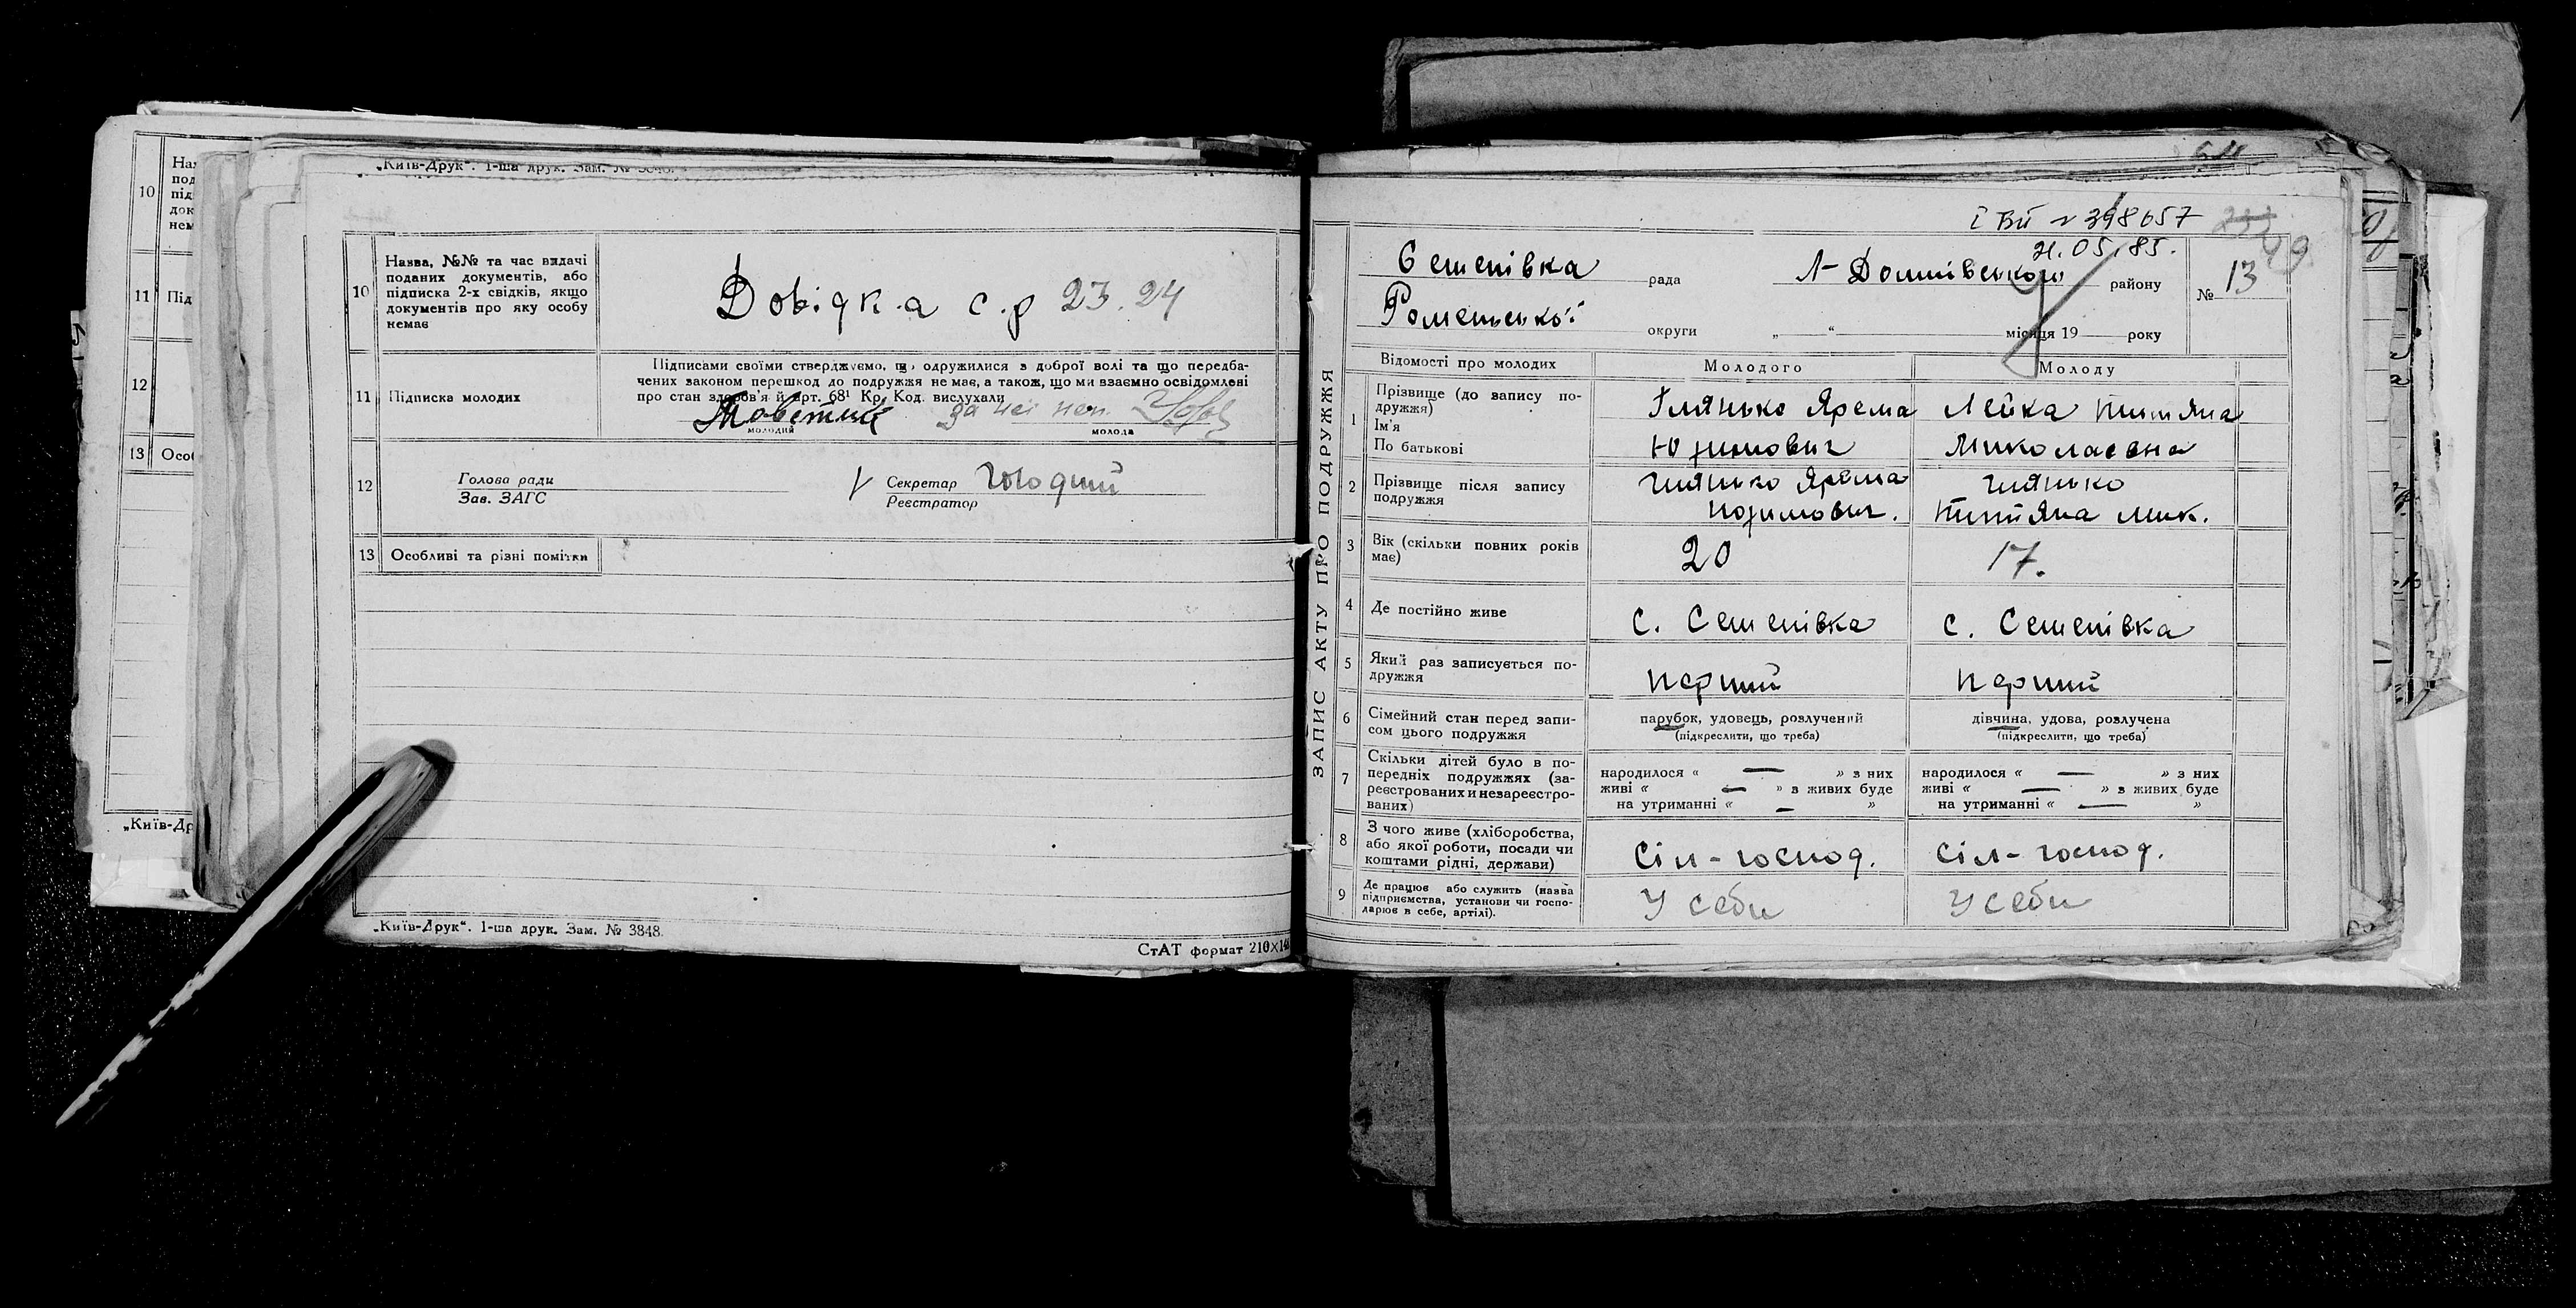 10
11
12
13
„Київ-Др
„Київ-Друк". 1-ша друк. Зам. № 3848.
10 Назва, №№ та час видачі
поданих документів, або
підписка 2-х свідків, якщо
документів про яку особу
немає
Довідка с.р 23.24
11 Підписка молодих
Підписами своїми стверджуємо, що одружилися з доброї волі та що передба-
чених законом перешкод до подружжя немає, а також, що ми взаємно освідомлені
про стан здоров'я й арт. 68¹ Кр. Код. вислухали
за неї неп.
молодий молода
12 Голова ради
Зав. ЗАГС
Секретар
Реєстратор
13 Особливі та різні помітки
„Київ-Друк". 1-ша друк. Зам. № 3848.
СтАТ формат 210×14
ЗАПИС АКТУ ПРО ПОДРУЖЖЯ
І БП № 398657
21.05.85.
49
Семенівка рада Л-Долинівського району
№ 13
Роменської округи „ “ місяця 19 року
Відомості про молодих Молодого Молоду
1 Прізвище (до запису по-
дружжя)
Ім'я
По батькові
Глянько Ярема
Юхимович
Лейка Титяна
Миколаєвна
2 Прізвище після запису
подружжя
Глянько Ярема
Юхимович.
Глянько
Титяна Мик.
3 Вік (скільки повних років
має)
20 17.
4 Де постійно живе с. Семенівка с. Семенівка
5 Який раз записується по-
дружжя
перший перший
6 Сімейний стан перед запи-
сом цього подружжя
парубок, удовець, розлучений
(підкреслити, що треба)
дівчина, удова, розлучена
(підкреслити, що треба)
7 Скільки дітей було в по-
передніх подружжях (за-
реєстрованих и незареєстро-
ваних)
народилося « — » з них
живі « — » з живих буде
на утриманні « — »
народилося « — » з них
живі « — » з живих буде
на утриманні « — »
8 З чого живе (хліборобства,
або якої роботи, посади чи
коштами рідні, держави)
Сіл-господ. Сіл-господ.
9 Де працює або служить (назва
підприємства, установи чи госпо-
дарює в себе, артілі).
У себи У себи